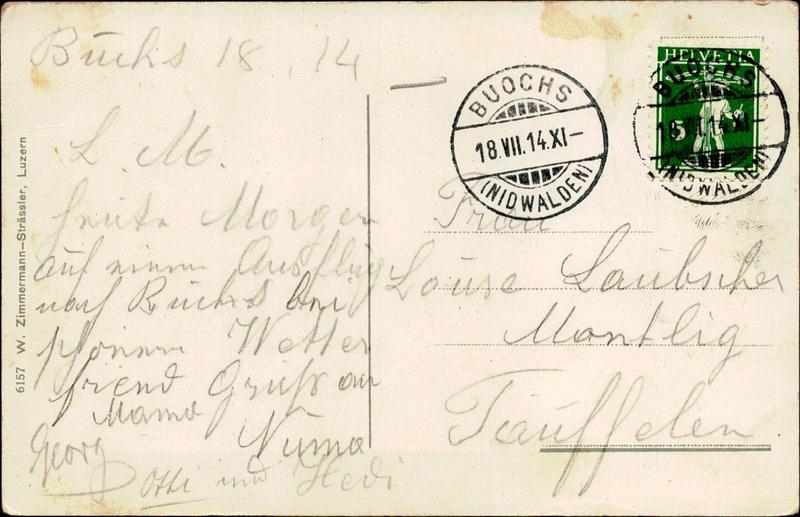 Buchs 18 . 14
L. M.
heute Morgen
auf einem Ausflug
nach Buchs bei
schönem Wetter
freud Gruß an
Mama
Numa
Georg
Otti und Hedi
6157 W. Zimmermann-Strässler, Luzern
BUOCHS
18.VII.14.XI-
(NIDWALDEN)
HELVETIA
5
BUOCHS
18.VII.14.XI-
(NIDWALDEN)
Frau
Louise Laubscher
Montlig
Täuffelen